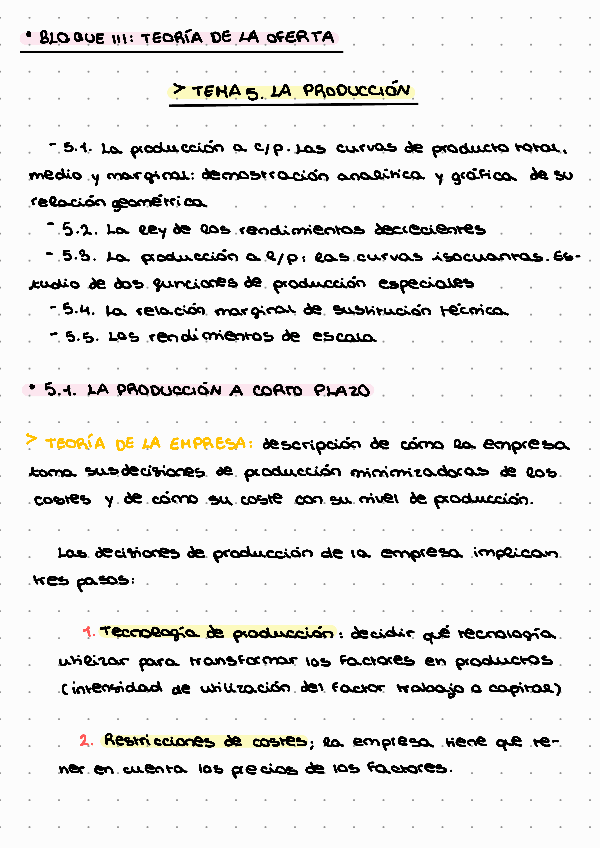 • BLOQUE III: TEORÍA DE LA OFERTA
> TEMA 5. LA PRODUCCIÓN
- 5.1. La producción a c/p. Las curvas de producto total,
medio y marginal: demostración analítica y gráfica de su
relación geométrica
- 5.2. La ley de los rendimientos decrecientes
- 5.3. La producción a l/p: las curvas isocuantas. Es-
tudio de dos funciones de producción especiales
- 5.4. La relación marginal de sustitución técnica
- 5.5. Los rendimientos de escala
• 5.1. LA PRODUCCIÓN A CORTO PLAZO
> TEORÍA DE LA EMPRESA: descripción de cómo la empresa
toma sus decisiones de producción minimizadoras de los
costes y de cómo su coste con su nivel de producción.
Las decisiones de producción de la empresa implican
tres pasos:
1. Tecnología de producción: decidir qué tecnología
utilizar para transformar los factores en productos
(intensidad de utilización del factor trabajo o capital)
2. Restricciones de costes; la empresa tiene que te-
ner en cuenta los precios de los factores.